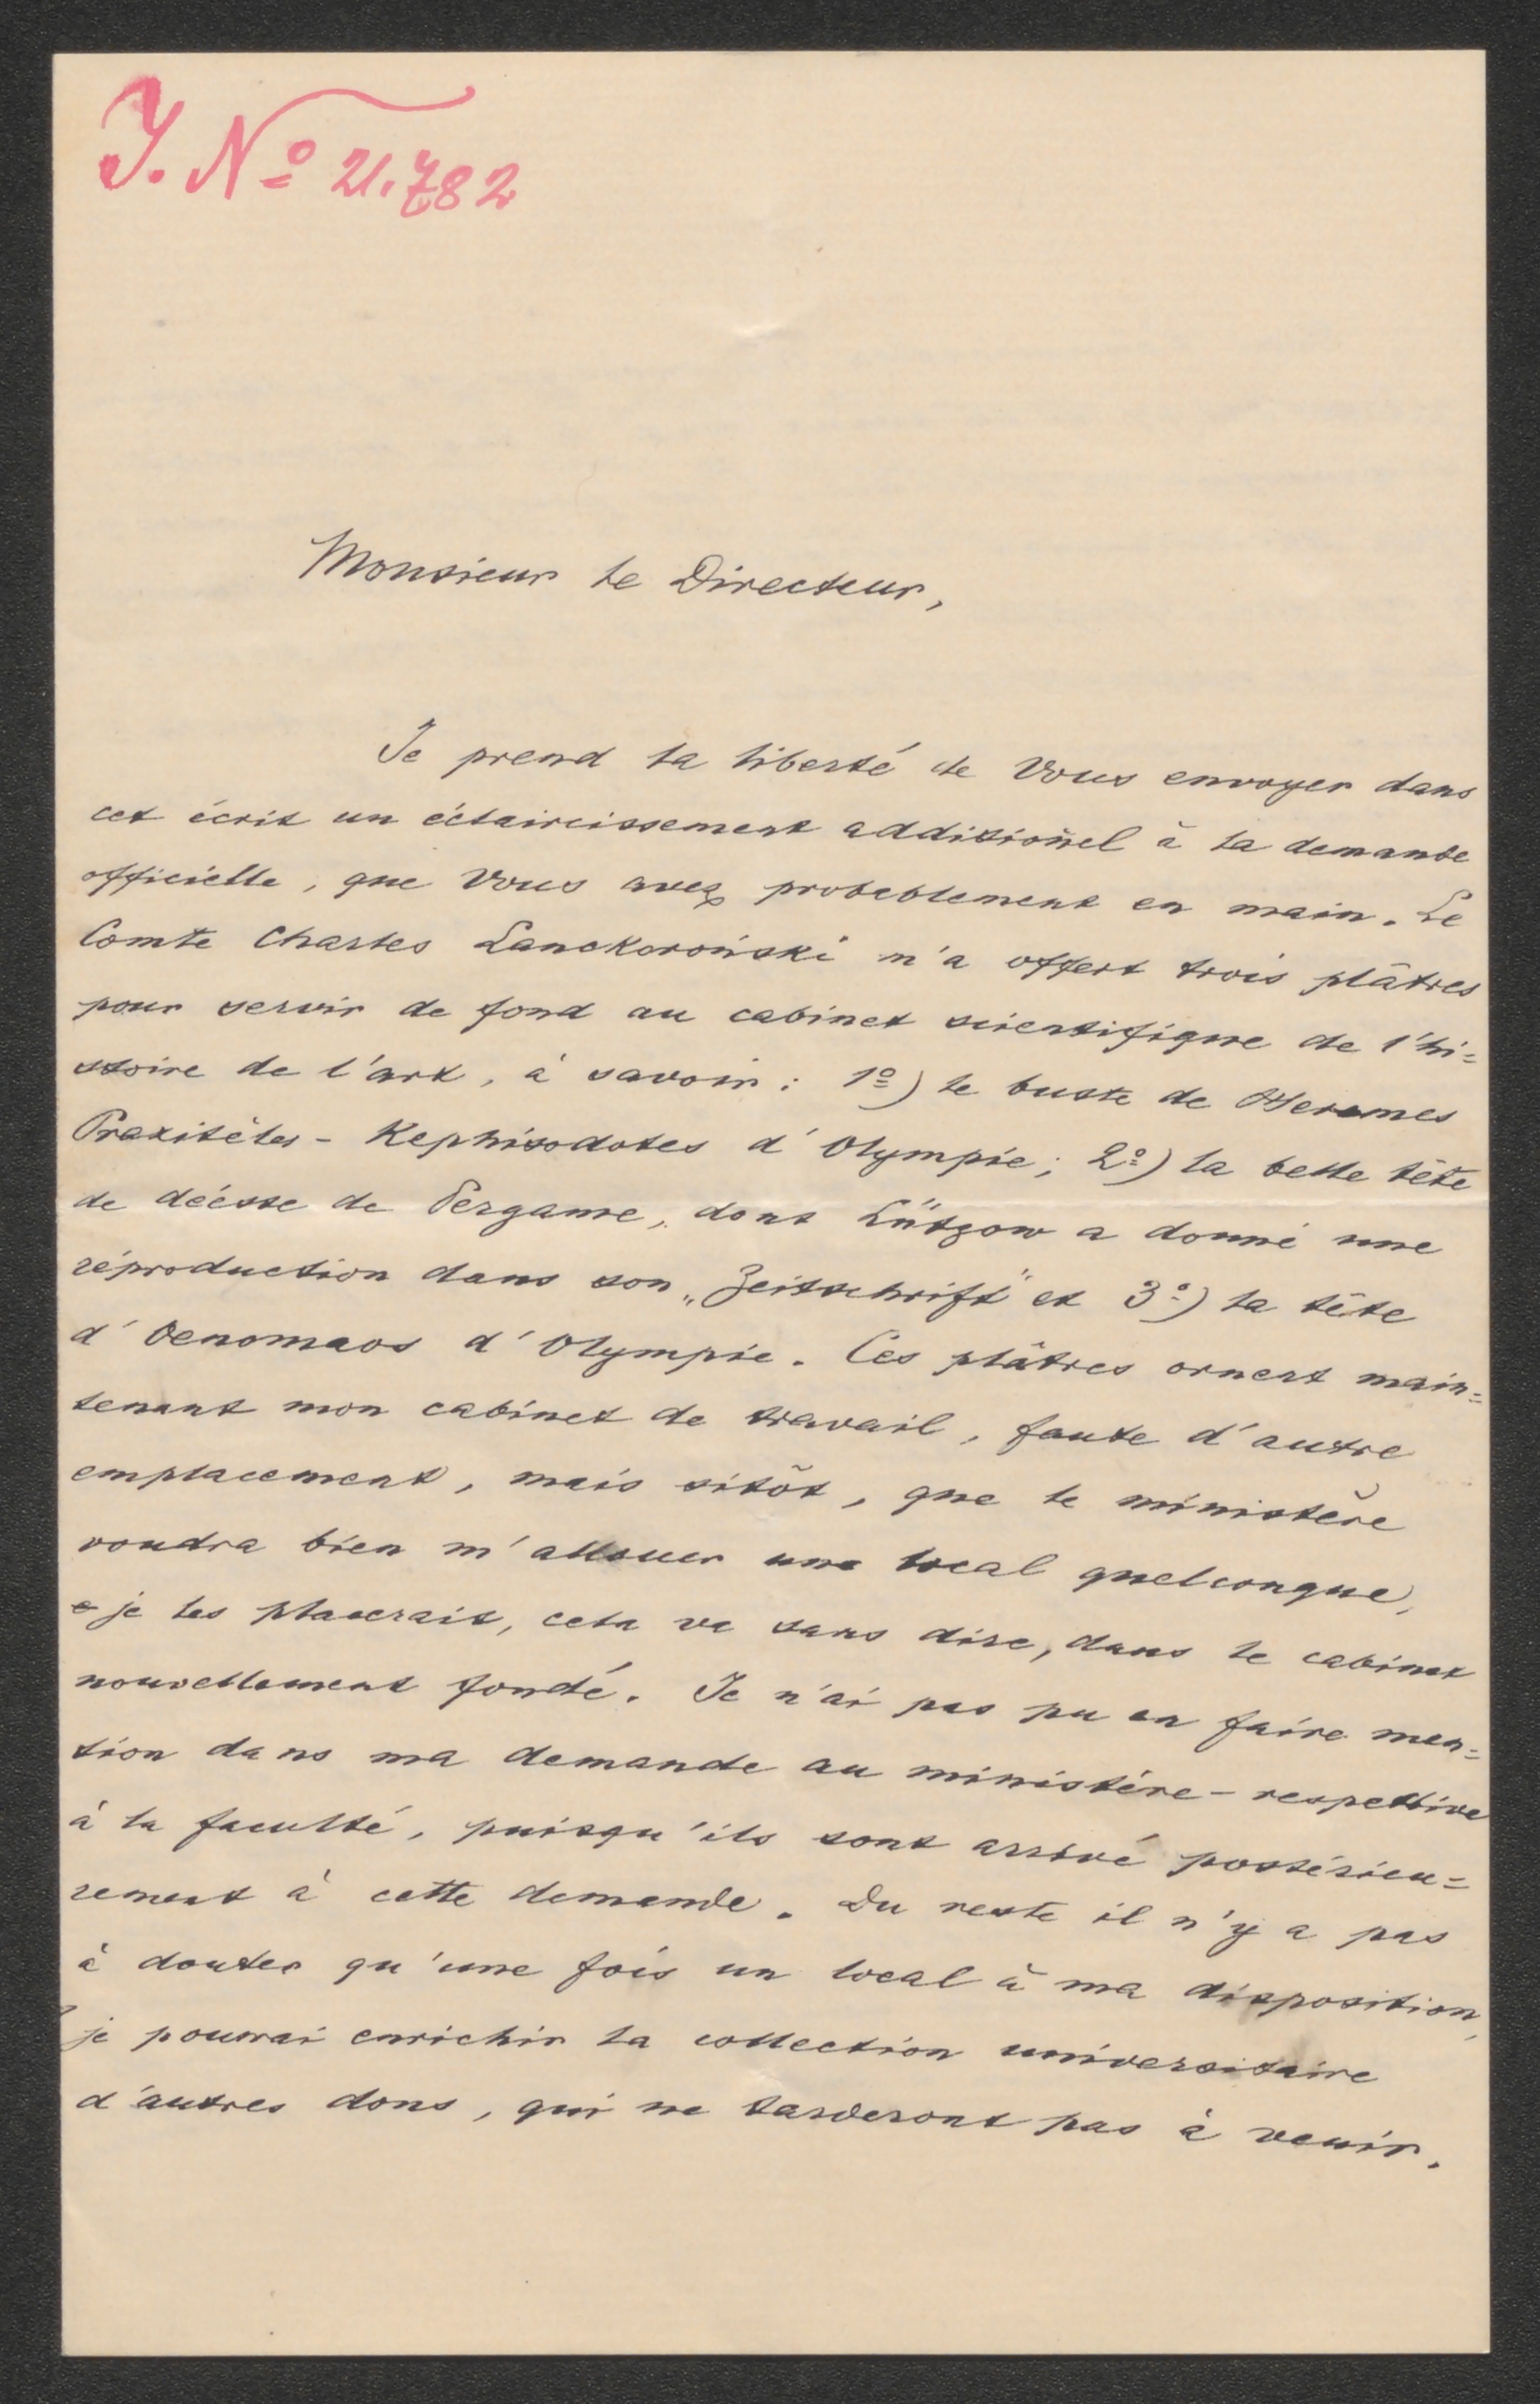 J. Nº 21.782
Monsieur le Directeur,
Je prend la liberté de Vous envoyer dans
cet écrit un éclaircissement additionel à la demande
officielle, que Vous avez probablement en main. Le
Comte Charles Lanckoroński m'a offert trois plâtres
pour servir de fond au cabinet scientifique de l'hi=
stoire de l'art, à savoir: 1º) le buste de Hermes
Praxitèles - Kephisodotes d'Olympie; 2º) la belle tête
de déesse de Pergame, dont Lützow a donné une
réproduction dans son „Zeitschrift" et 3º) la tête
d'Oenomaos d'Olympie. Ces plâtres ornent main=
tenant mon cabinet de travail, faute d'autre
emplacement, mais sitôt, que le ministère
voudra bien m'allouer un local quelconque,
je les placerais, cela va sans dire, dans le cabinet
nouvellement fondé. Je n'ai pas pu en faire men=
tion dans ma demande au ministère - respective
à la faculté, puisqu'ils sont arrivé postérieu=
rement à cette demande. Du reste il n'y a pas
à douter qu'une fois un local à ma disposition,
je pourrai enrichir la collection universitaire
d'autres dons, qui ne tarderont pas à venir.